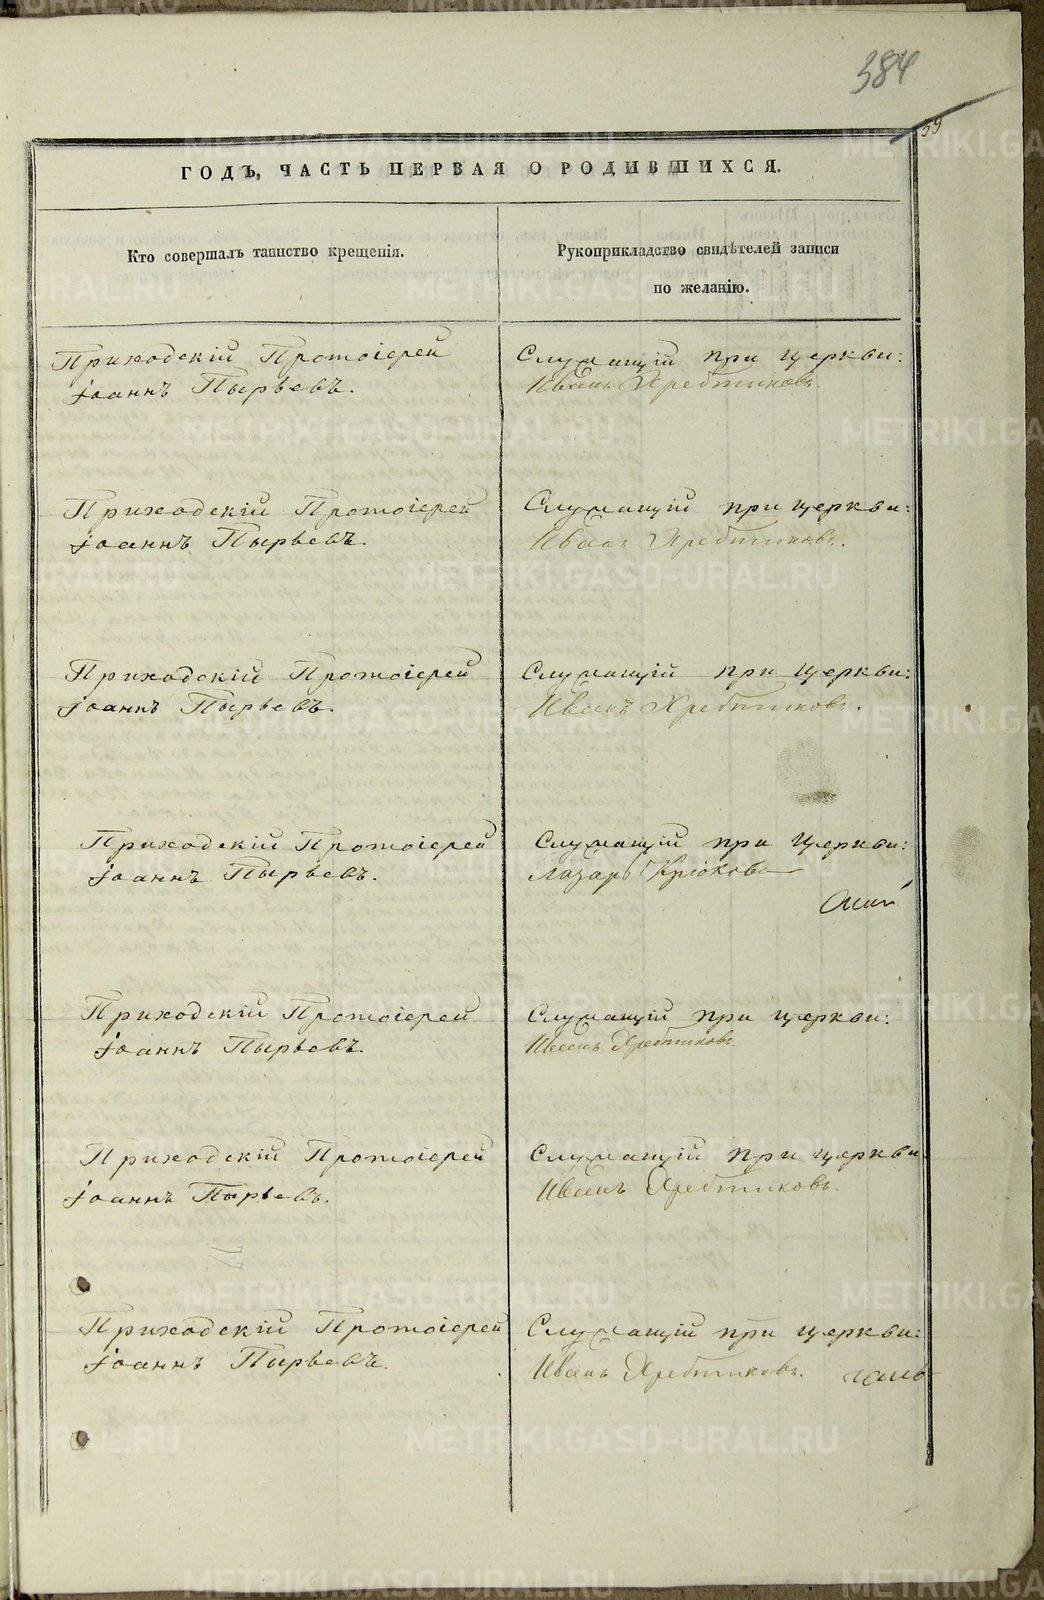 384
59
ГОДЪ, ЧАСТЬ ПЕРВАЯ О РОДИВШИХСЯ.
Кто совершалъ таинство крещенія.
Рукоприкладство свидѣтелей записи
по желанію.
Приходскій Протоіерей
Іоаннъ Пырьевъ.
Служащій при церкви:
Иванъ Хребтиковъ.
Приходскій Протоіерей
Іоаннъ Пырьевъ.
Служащій при церкви:
Иванъ Хребтиковъ.
Приходскій Протоіерей
Іоаннъ Пырьевъ.
Служащій при церкви:
Иванъ Хребтиковъ.
Приходскій Протоіерей
Іоаннъ Пырьевъ.
Служащій при церкви:
Лазарь Крюковъ
Приходскій Протоіерей
Іоаннъ Пырьевъ.
Служащій при церкви:
Иванъ Хребтиковъ
Приходскій Протоіерей
Іоаннъ Пырьевъ.
Служащій при церкви
Иванъ Хребтиковъ.
Приходскій Протоіерей
Іоаннъ Пырьевъ.
Служащій при церкви:
Иванъ Хребтиковъ.
METRIKI.GASO-URAL.RU